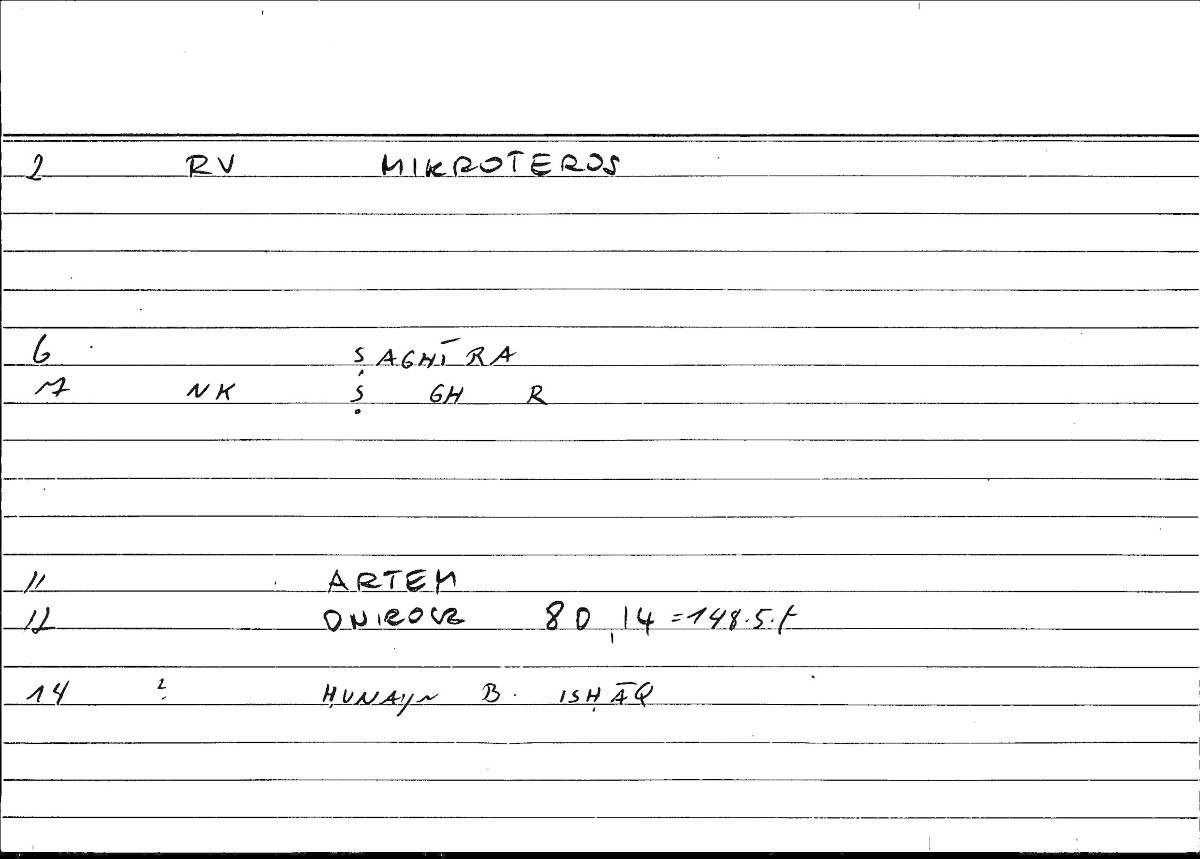 2 RV MIKROTEROS
6 ṢAGHĪRA
7 NK Ṣ GH R
11 ARTEM
12 ONIROCR 80,14 =148.5.f
14 ? ḤUNAYN B. ISḤĀQ